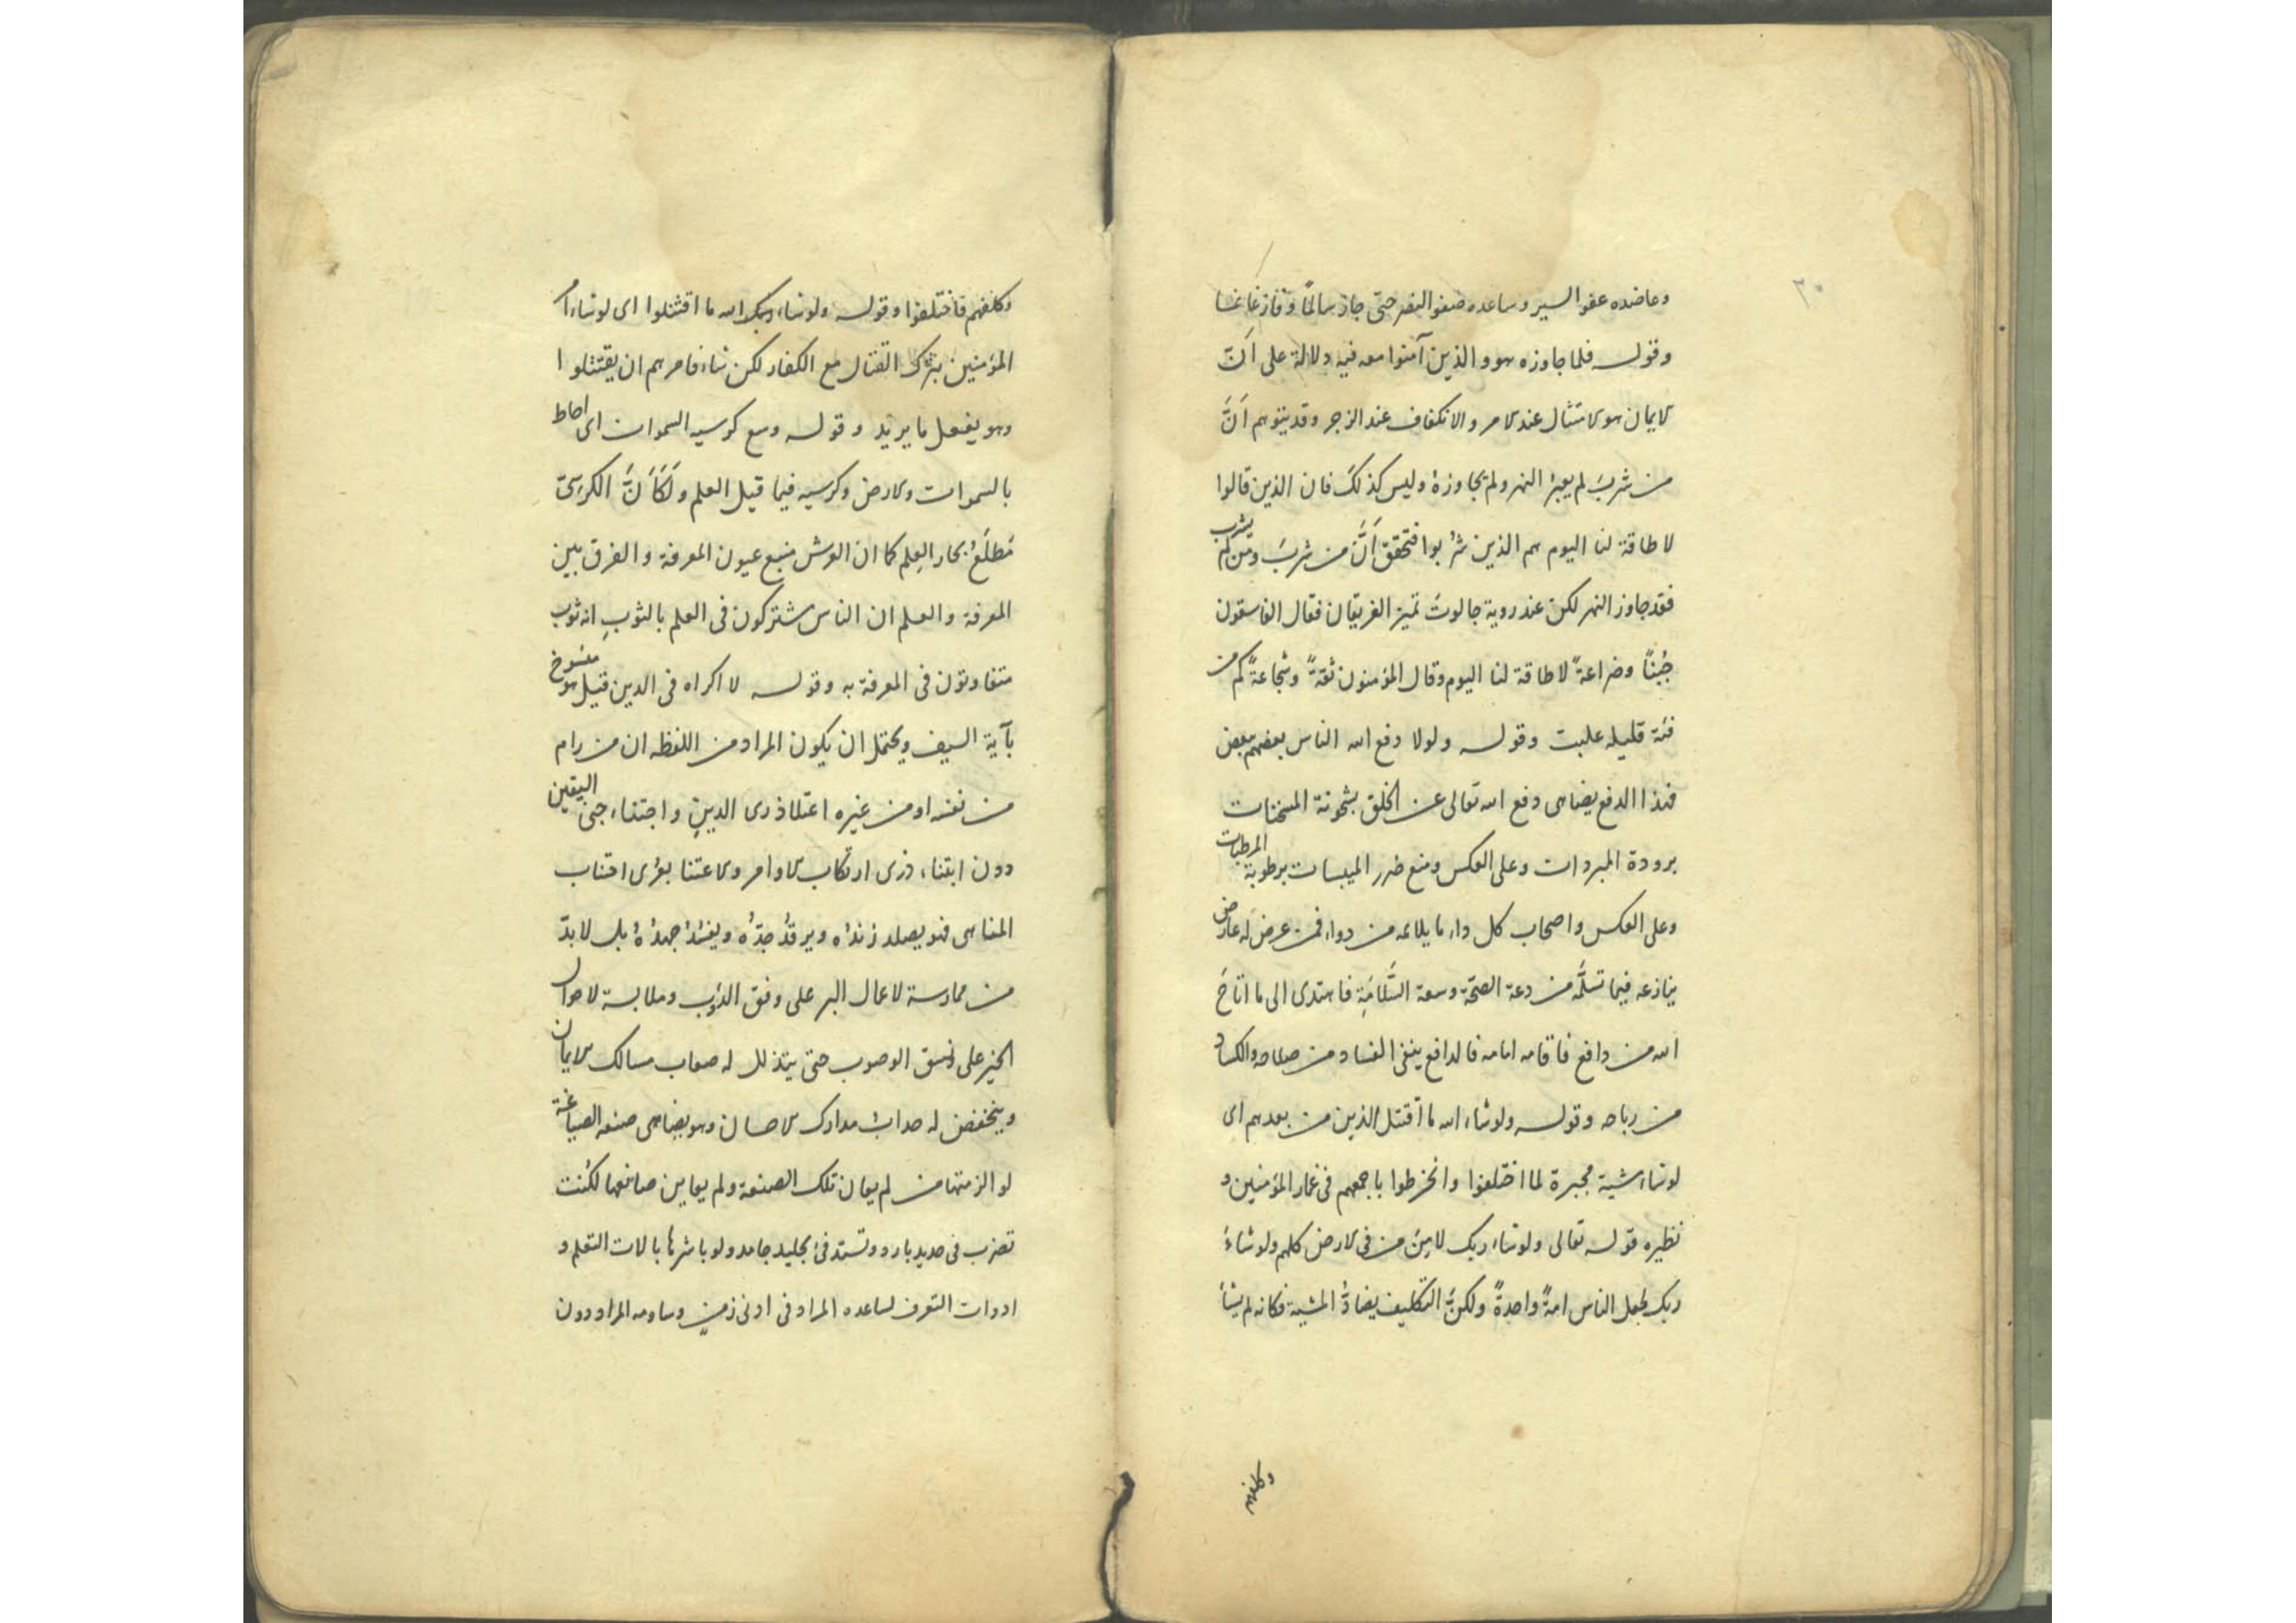 ٣٠
وعاضده عفو السير وساعده صفو النفر حتى جاز سالمًا وفاز غانما
وقوله فلما جاوزه هو والذين آمنوا معه فيه دلالة على اَنّ
الايمان هو الامتثال عند الامر والانكفاف عند الزجر وقد يتوهم اَنَّ
من شربَ لم يعبر النهر ولم يجاوزهُ وليس كذلكَ فان الذين قالوا
لا طاقة لنا اليوم هم الذين شربوا فتحقق اَنَّ من شربَ ومن لم يشرب
فقد جاوز النهر لكن عند روية جالوتَ تميز الفريقان فقال الفاسقون
جُبنًا وضراعةً لا طاقة لنا اليوم وقال المؤمنون ثقةً وشجاعةً كم من
فئة قليله غلبت وقوله ولولا دفع الله الناس بعضهم ببعض
فهذا الدفع يضاهى دفع الله تعالى عن الخلق بسخونة المسخنات
برودة المبردات وعلى العكس ومنع ضرر الميبسات برطوبة المرطبات
وعلى العكس واصحاب كل داء ما يلائمه من دواء فمن عرض له عارض
ينازعه فيما تسلَّمه من دعة الصحّة وسعة السَّلامَةِ فاهتدى الى ما اتاحَ
الله من دافع فاقامه امامه فالدافع ينفى الفساد من صلاحه والكساد
من رباحه وقوله ولو شاء الله ما اقتتل الذين من بعدهم اى
لو شاء مشية مجبرة لما اختلفوا وانخرطوا باجمعهم فى غمار المؤمنين و
نظيره قوله تعالى ولو شاء ربك لامن من فى الارض كلهم ولو شاءَ
ربك لجعل الناس امةً واحدةً ولكنَّ التكليف يضادُّ المشية فكانه لم يشأ
وكلفهم
وكلفهم فاختلفوا وقوله ولو شاء ربك الله ما اقتتلوا اى لو شاء امر
المؤمنين بترك القتال مع الكفار لكن شاء فامرهم ان يقتتلوا
وهو يفعل ما يريد وقوله وسع كرسيه السموات اى احاط
بالسموات والارض وكرسيه فيما قيل العلم ولَكَاَنَّ الكرسىّ
مَطلَعُ بحار العِلم كما ان العرش منبع عيون المعرفة والفرق بين
المعرفة والعلم ان الناس مشتركون فى العلم بالثوبِ انه ثوب
متفاوتون فى المعرفة به وقوله لا اكراه فى الدين قيل هو منسوخ
بآية السيف ويحتمل ان يكون المراد من اللفظه ان من رام
من نفسه او من غيره اعتلاء ذرى الدينِ واجتناء جنى اليقين
دون ابتناء ذرى ارتكاب الاوامر والاعتنا بعرى اجتناب
المناهى فهو يصلد زندُه ويرقدُ جدّهُ ويفسدُ جهدُهُ بل لا بدّ
من ممارسة لاعمال البر على وفق الدؤب وملابسة لاحوال
الخير على نسق الوصوب حتى يتذلل له صعاب مسالك الايمان
وينخفض له حداب مدارك الاحسان وهو يضاهى صنعه الصياغة
لو الزمتها من لم يعان تلك الصنعة ولم يعاين صانعها لكُنت
تضرب فى حديد بارد وتستدفئ بجليد جامد ولو باشرها بالات التعلم و
ادوات التعرف لساعده المراد فى ادنى زمنٍ وساومه المراد دون